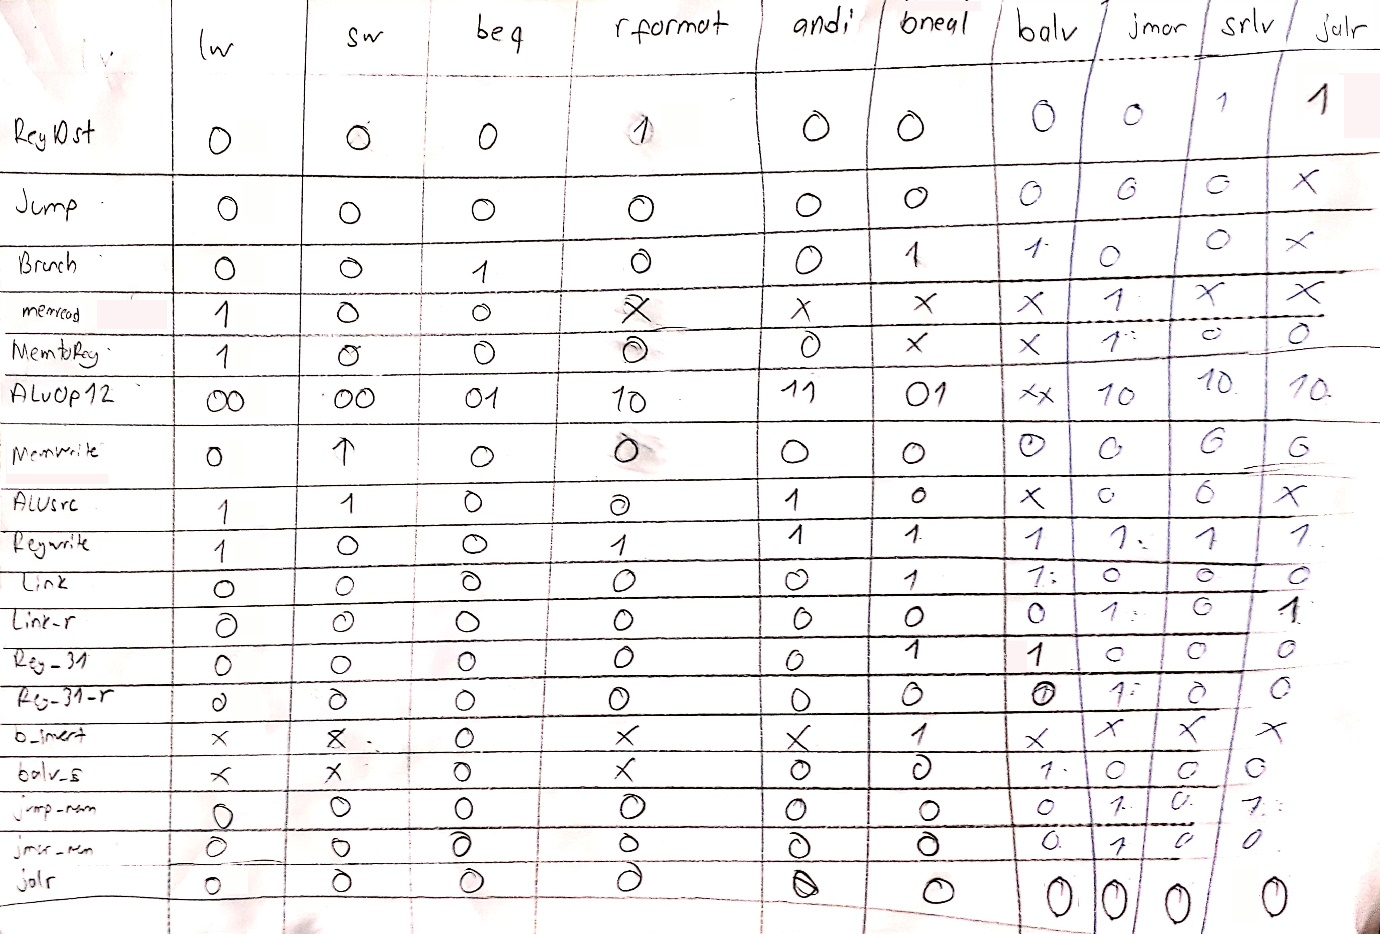 lw sw beq rformat andi bneal balv jmor srlv jalr
RegDst 0 0 0 1 0 0 0 0 1 1
Jump 0 0 0 0 0 0 0 0 0 X
Branch 0 0 1 0 0 1 1 0 0 X
memread 1 0 0 X X X X 1 X X
MemtoReg 1 0 0 0 0 X X 1 0 0
ALUOp12 00 00 01 10 11 01 XX 10 10 10
Memwrite 0 1 0 0 0 0 0 0 0 0
ALUsrc 1 1 0 0 1 0 X 0 0 X
Regwrite 1 0 0 1 1 1 1 1 1 1
Link 0 0 0 0 0 1 1 0 0 0
Link-r 0 0 0 0 0 0 0 1 0 1
Reg_31 0 0 0 0 0 1 1 0 0 0
Reg_31-r 0 0 0 0 0 0 0 1 0 0
X X 0 X X 1 X X X X
balv_s X X 0 X 0 0 1 0 0 0
0 0 0 0 0 0 0 1 0 1
0 0 0 0 0 0 0 1 0 0
jalr 0 0 0 0 0 0 0 0 0 0